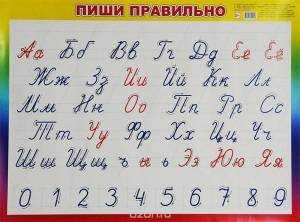 ПИШИ ПРАВИЛЬНО
Аа Бб Вв Гг Дд Ее Ёё
Жж Зз Ии Йй Кк Лл
Мм Нн Оо Пп Рр Сс
Тт Уу Фф Хх Цц Чч
Шш Щщ ъ ы ь Ээ Юю Яя
0 1 2 3 4 5 6 7 8 9